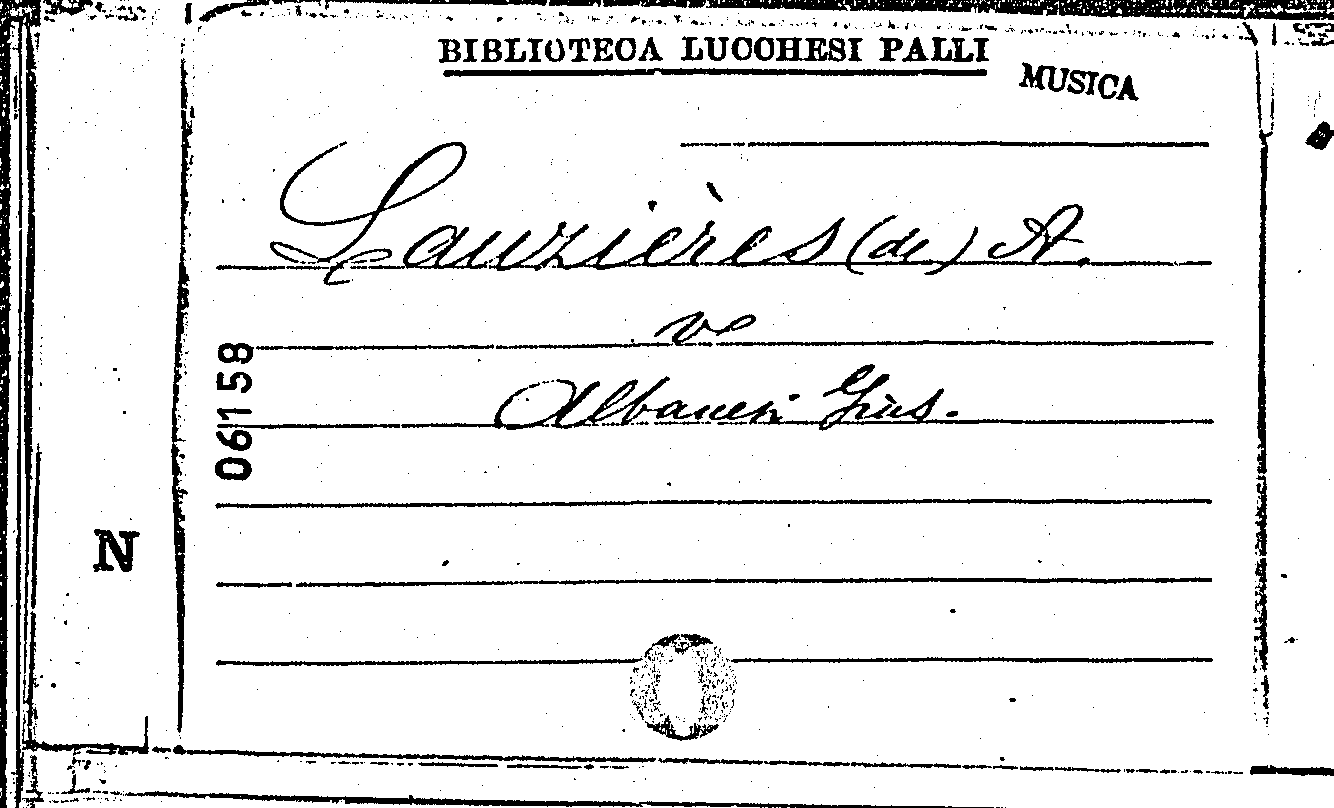 BIBLIOTECA LUCCHESI PALLI
MUSICA
Lauzières (de) A.
ve
Albanesi Gius.
06158
N